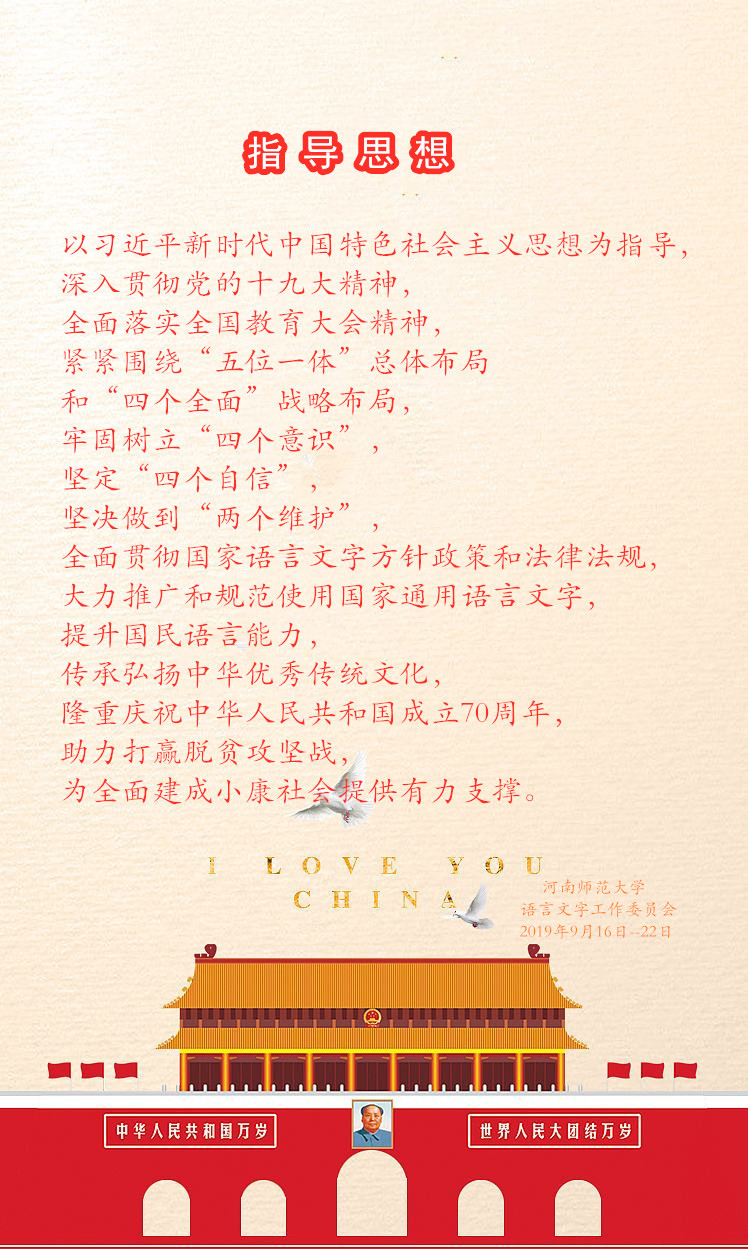 指导思想
以习近平新时代中国特色社会主义思想为指导，
深入贯彻党的十九大精神，
全面落实全国教育大会精神，
紧紧围绕“五位一体”总体布局
和“四个全面”战略布局，
牢固树立“四个意识”，
坚定“四个自信”，
坚决做到“两个维护”，
全面贯彻国家语言文字方针政策和法律法规，
大力推广和规范使用国家通用语言文字，
提升国民语言能力，
传承弘扬中华优秀传统文化，
隆重庆祝中华人民共和国成立70周年，
助力打赢脱贫攻坚战，
为全面建成小康社会提供有力支撑。
I LOVE YOU
CHINA
河南师范大学
语言文字工作委员会
2019年9月16日--22日
中华人民共和国万岁
世界人民大团结万岁